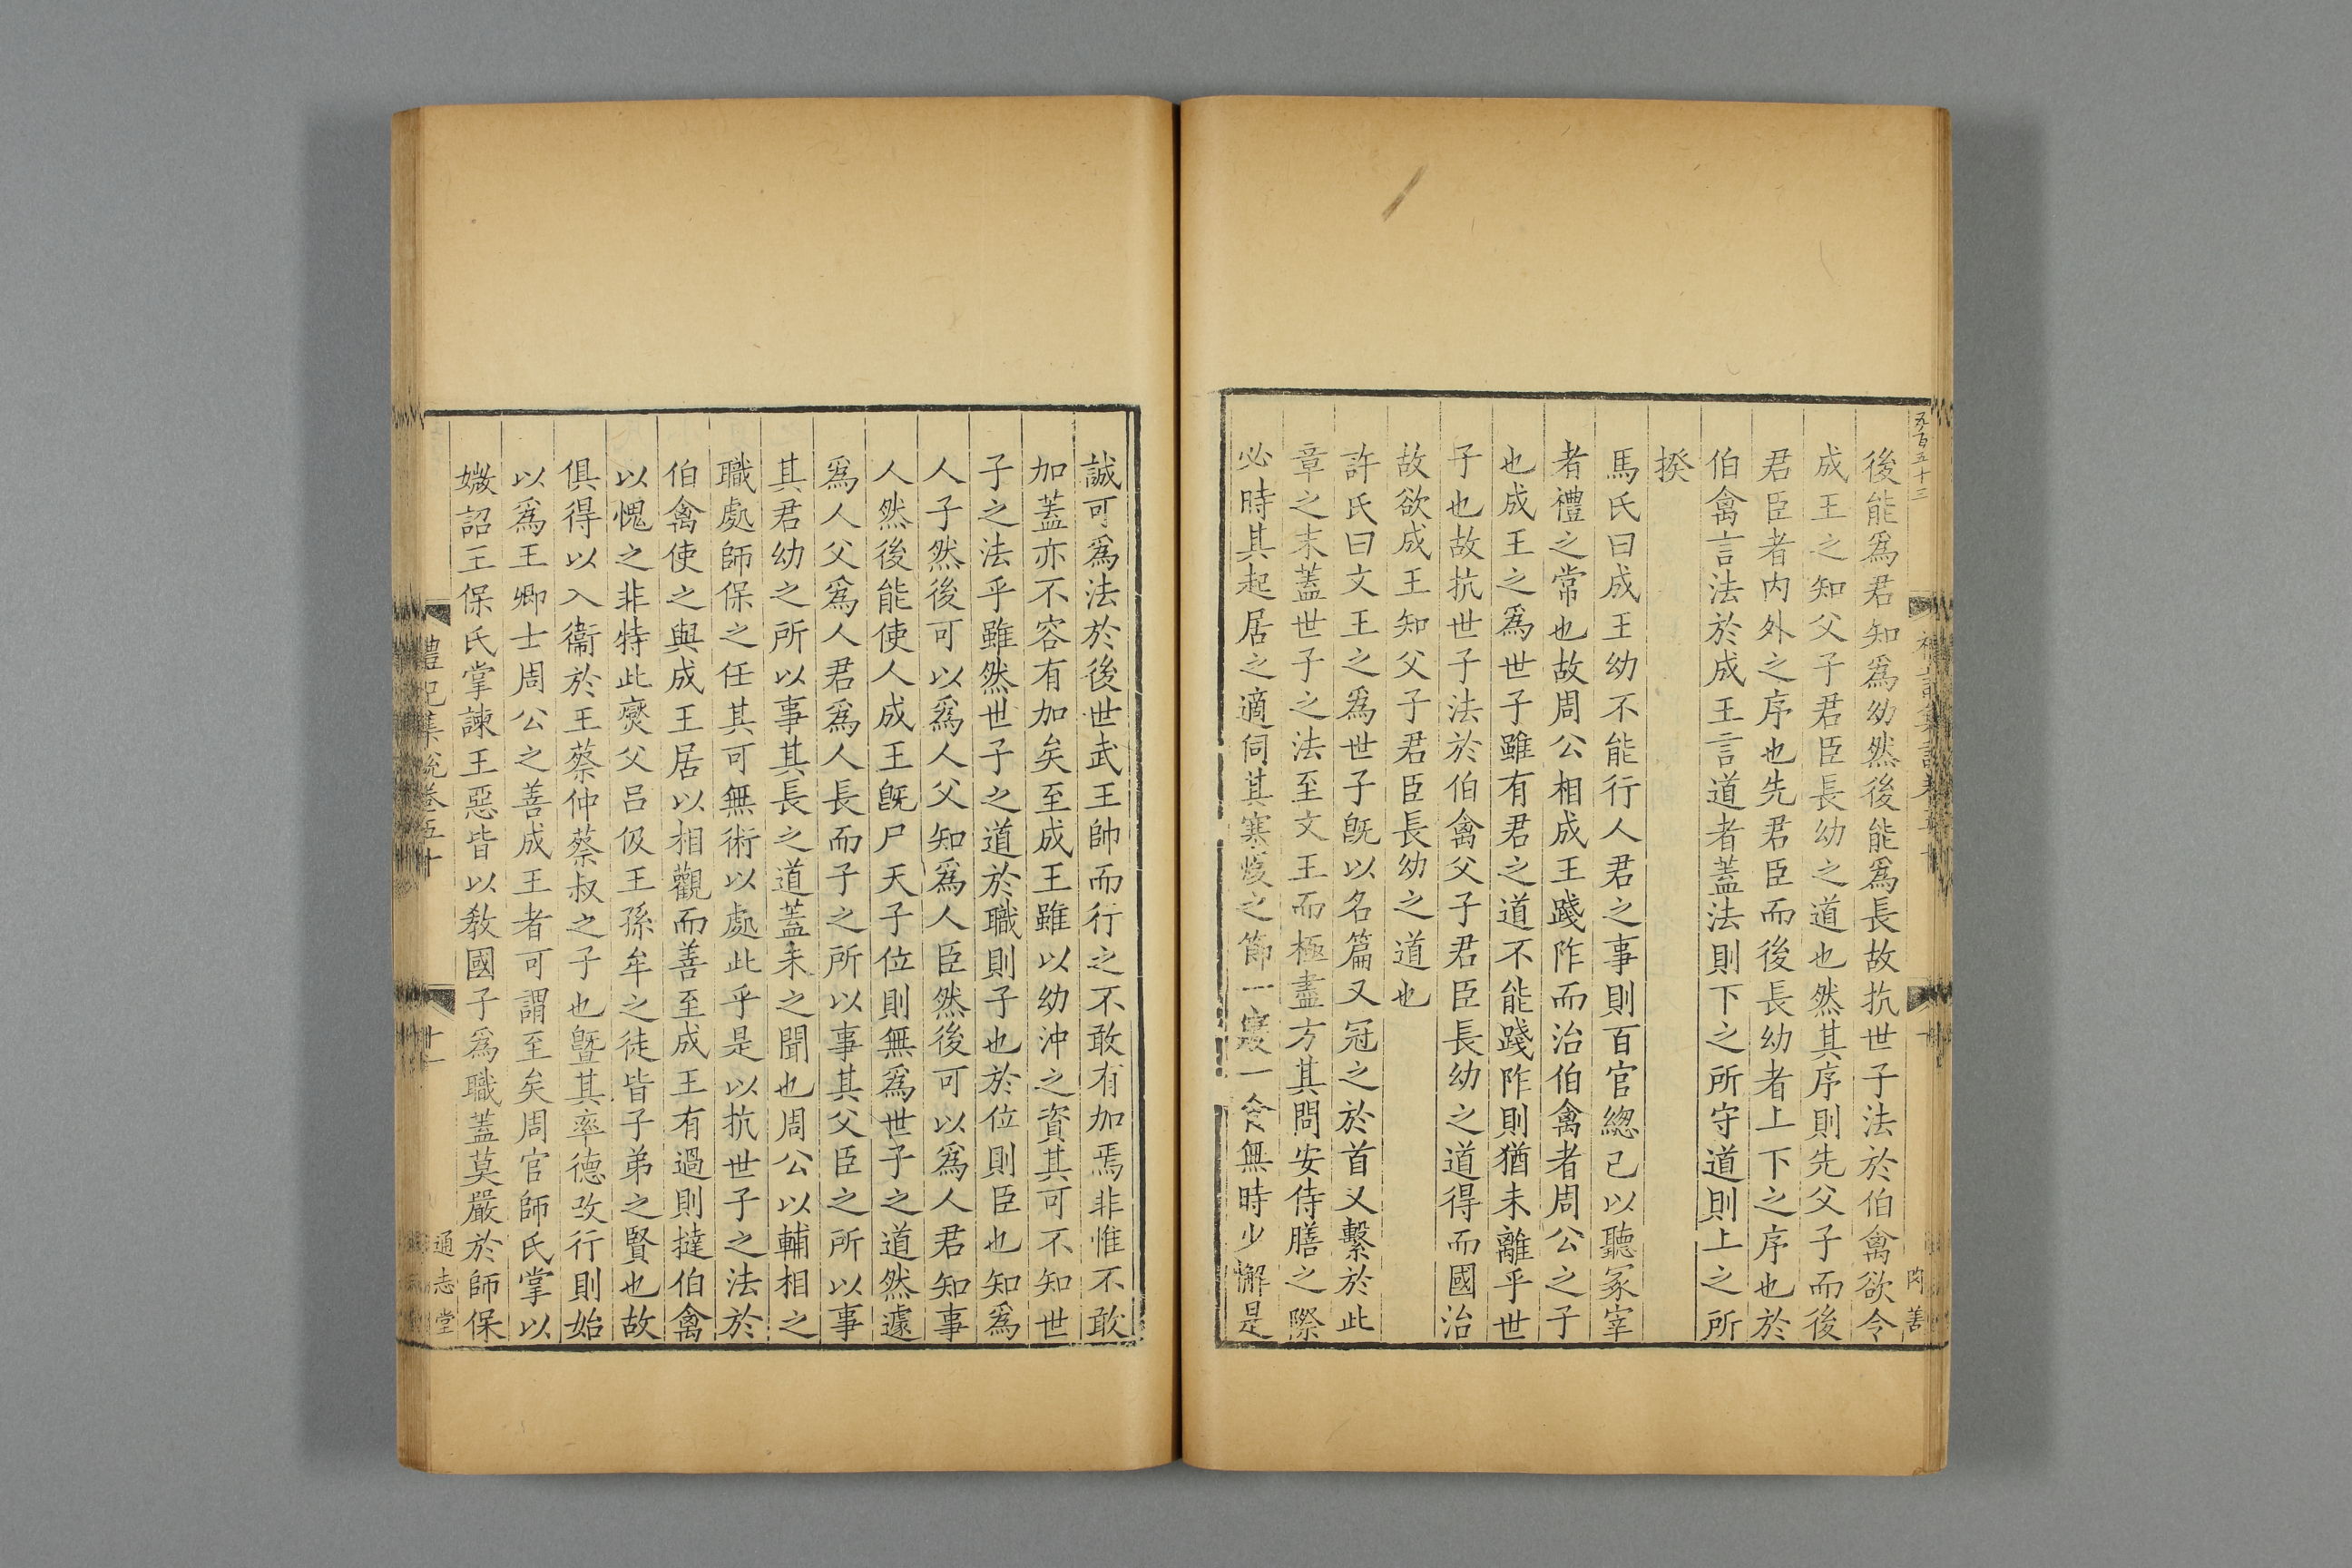 五百五十三
後能爲君知爲幼然後能爲長故抗世子法於伯禽欲令
成王之知父子君臣長幼之道也然其序則先父子而後
君臣者内外之序也先君臣而後長幼者上下之序也於
伯禽言法於成王言道者蓋法則下之所守道則上之所
揆
馬氏曰成王幼不能行人君之事則百官緫己以聽冢宰
者禮之常也故周公相成王踐阼而治伯禽者周公之子
也成王之爲世子雖有君之道不能踐阼則猶未離乎世
子也故抗世子法於伯禽父子君臣長幼之道得而國治
故欲成王知父子君臣長幼之道也
許氏曰文王之爲世子旣以名篇又冠之於首又繫於此
章之末蓋世子之法至文王而極盡方其問安侍膳之際
必時其起居之適伺其寒煖之節一寒一食無時少懈是
誠可爲法於後世武王帥而行之不敢有加焉非惟不敢
加蓋亦不容有加矣至成王雖以幼沖之資其可不知世
子之法乎雖然世子之道於職則子也於位則臣也知爲
人子然後可以爲人父知爲人臣然後可以爲人君知事
人然後能使人成王旣尸天子位則無爲世子之道然遽
爲人父爲人君爲人長而子之所以事其父臣之所以事
其君幼之所以事其長之道蓋未之聞也周公以輔相之
職處師保之任其可無術以處此乎是以抗世子之法於
伯禽使之與成王居以相觀而善至成王有過則撻伯禽
以愧之非特此爕父呂伋王孫牟之徒皆子弟之賢也故
俱得以入衞於王蔡仲蔡叔之子也曁其率德改行則始
以爲王卿士周公之善成王者可謂至矣周官師氏掌以
媺詔王保氏掌諫王惡皆以敎國子爲職蓋莫嚴於師保
禮記集說卷五十
十一
通志堂